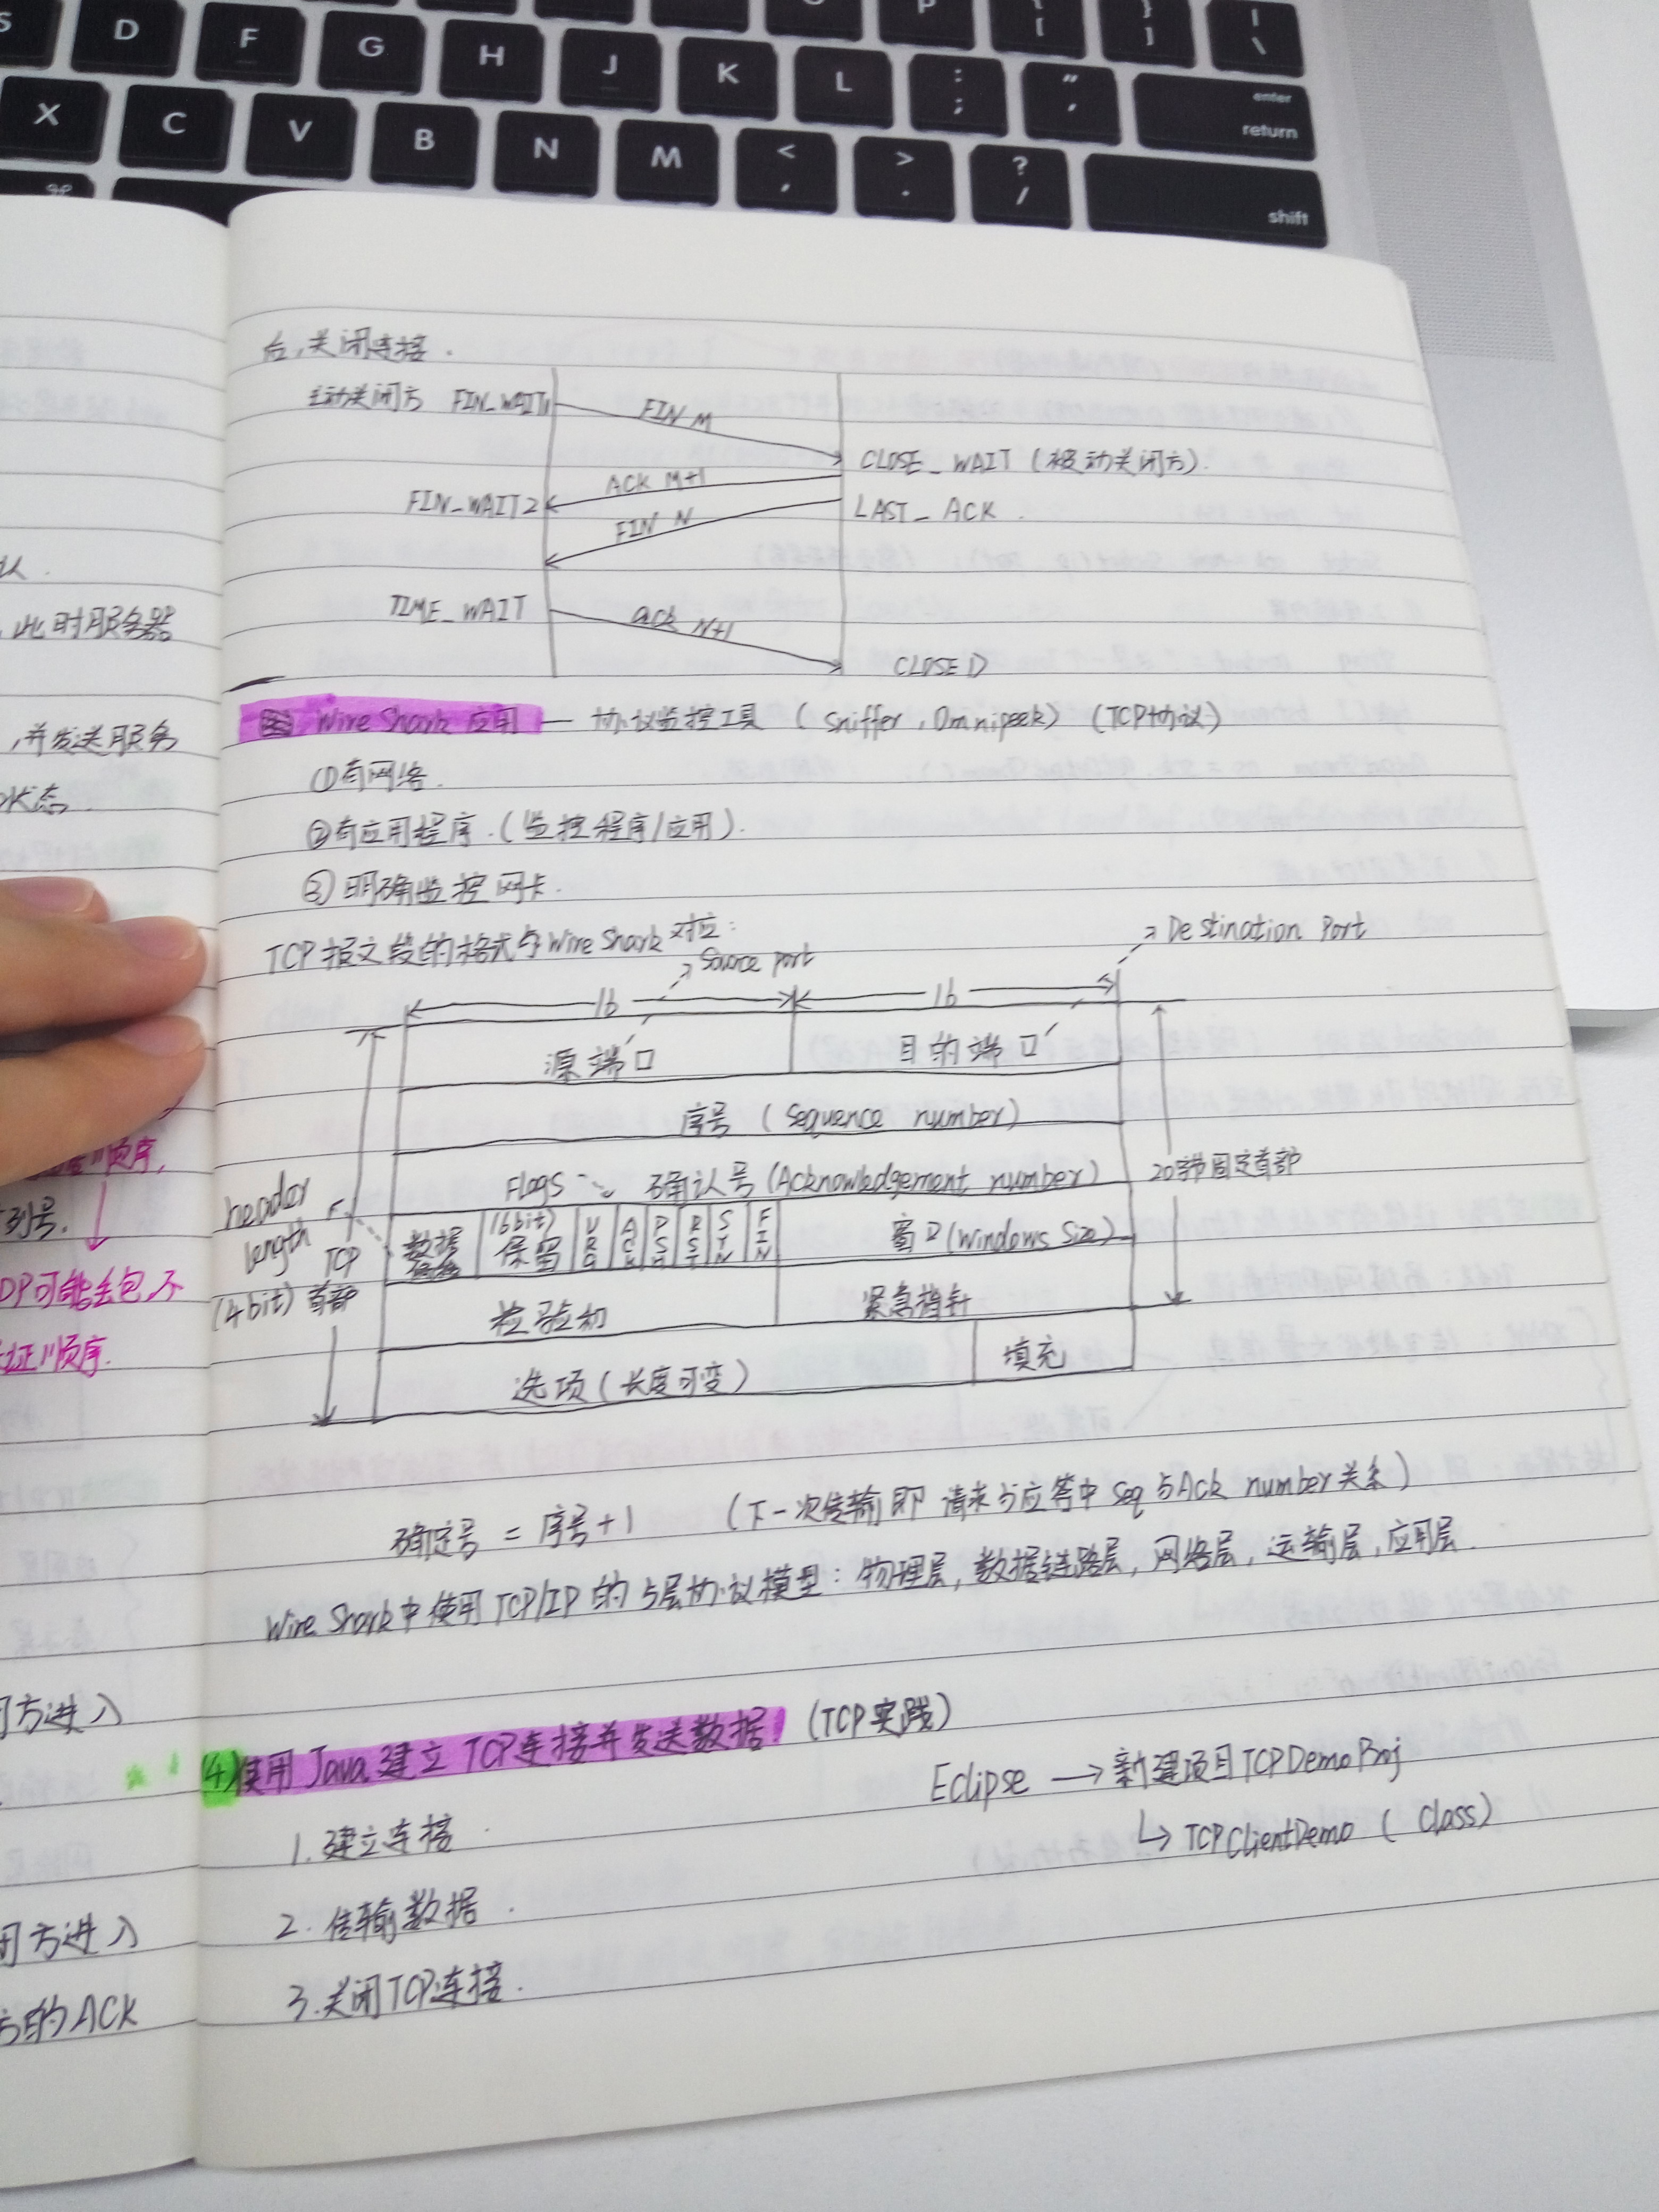 S D F G H J K L : ; " ' enter return
P { [ } ] | \
X C V B N M < , > . ? / shift
后,关闭连接.
主动关闭方 FIN_WAIT1
FIN M
CLOSE_WAIT (被动关闭方).
ACK M+1
FIN_WAIT2
LAST_ACK.
FIN N
TIME_WAIT
ack N+1
CLOSED
Wire Shark 应用 — 协议监控工具 (sniffer, Omnipeek) (TCP协议)
①有网络.
②有应用程序.(监控程序/应用).
③明确监控网卡.
TCP报文段的格式与Wire Shark对应:
Source port
Destination Port
16 16
源端口 目的端口
序号 (Sequence number)
Flags 确认号 (Acknowledgement number)
20字节固定首部
header length (4bit)
TCP首部
数据偏移 (6bit)保留 URG ACK PSH RST SYN FIN 窗口(Windows Size)
检验和 紧急指针
选项(长度可变) 填充
确定号 = 序号+1 (下一次传输即 请求与应答中 seq与Ack number关系)
Wire Shark中使用TCP/IP的5层协议模型: 物理层,数据链路层,网络层,运输层,应用层.
(4)使用 Java 建立 TCP连接并发送数据! (TCP实践)
Eclipse → 新建项目TCPDemoProj
↳ TCPClientDemo ( Class)
1.建立连接.
2.传输数据.
3.关闭TCP连接.
认.
,此时服务器
,并发送服务
状态.
顺序,
列号.
DP可能丢包,不
证顺序.
闭方进入
闭方进入
方的ACK